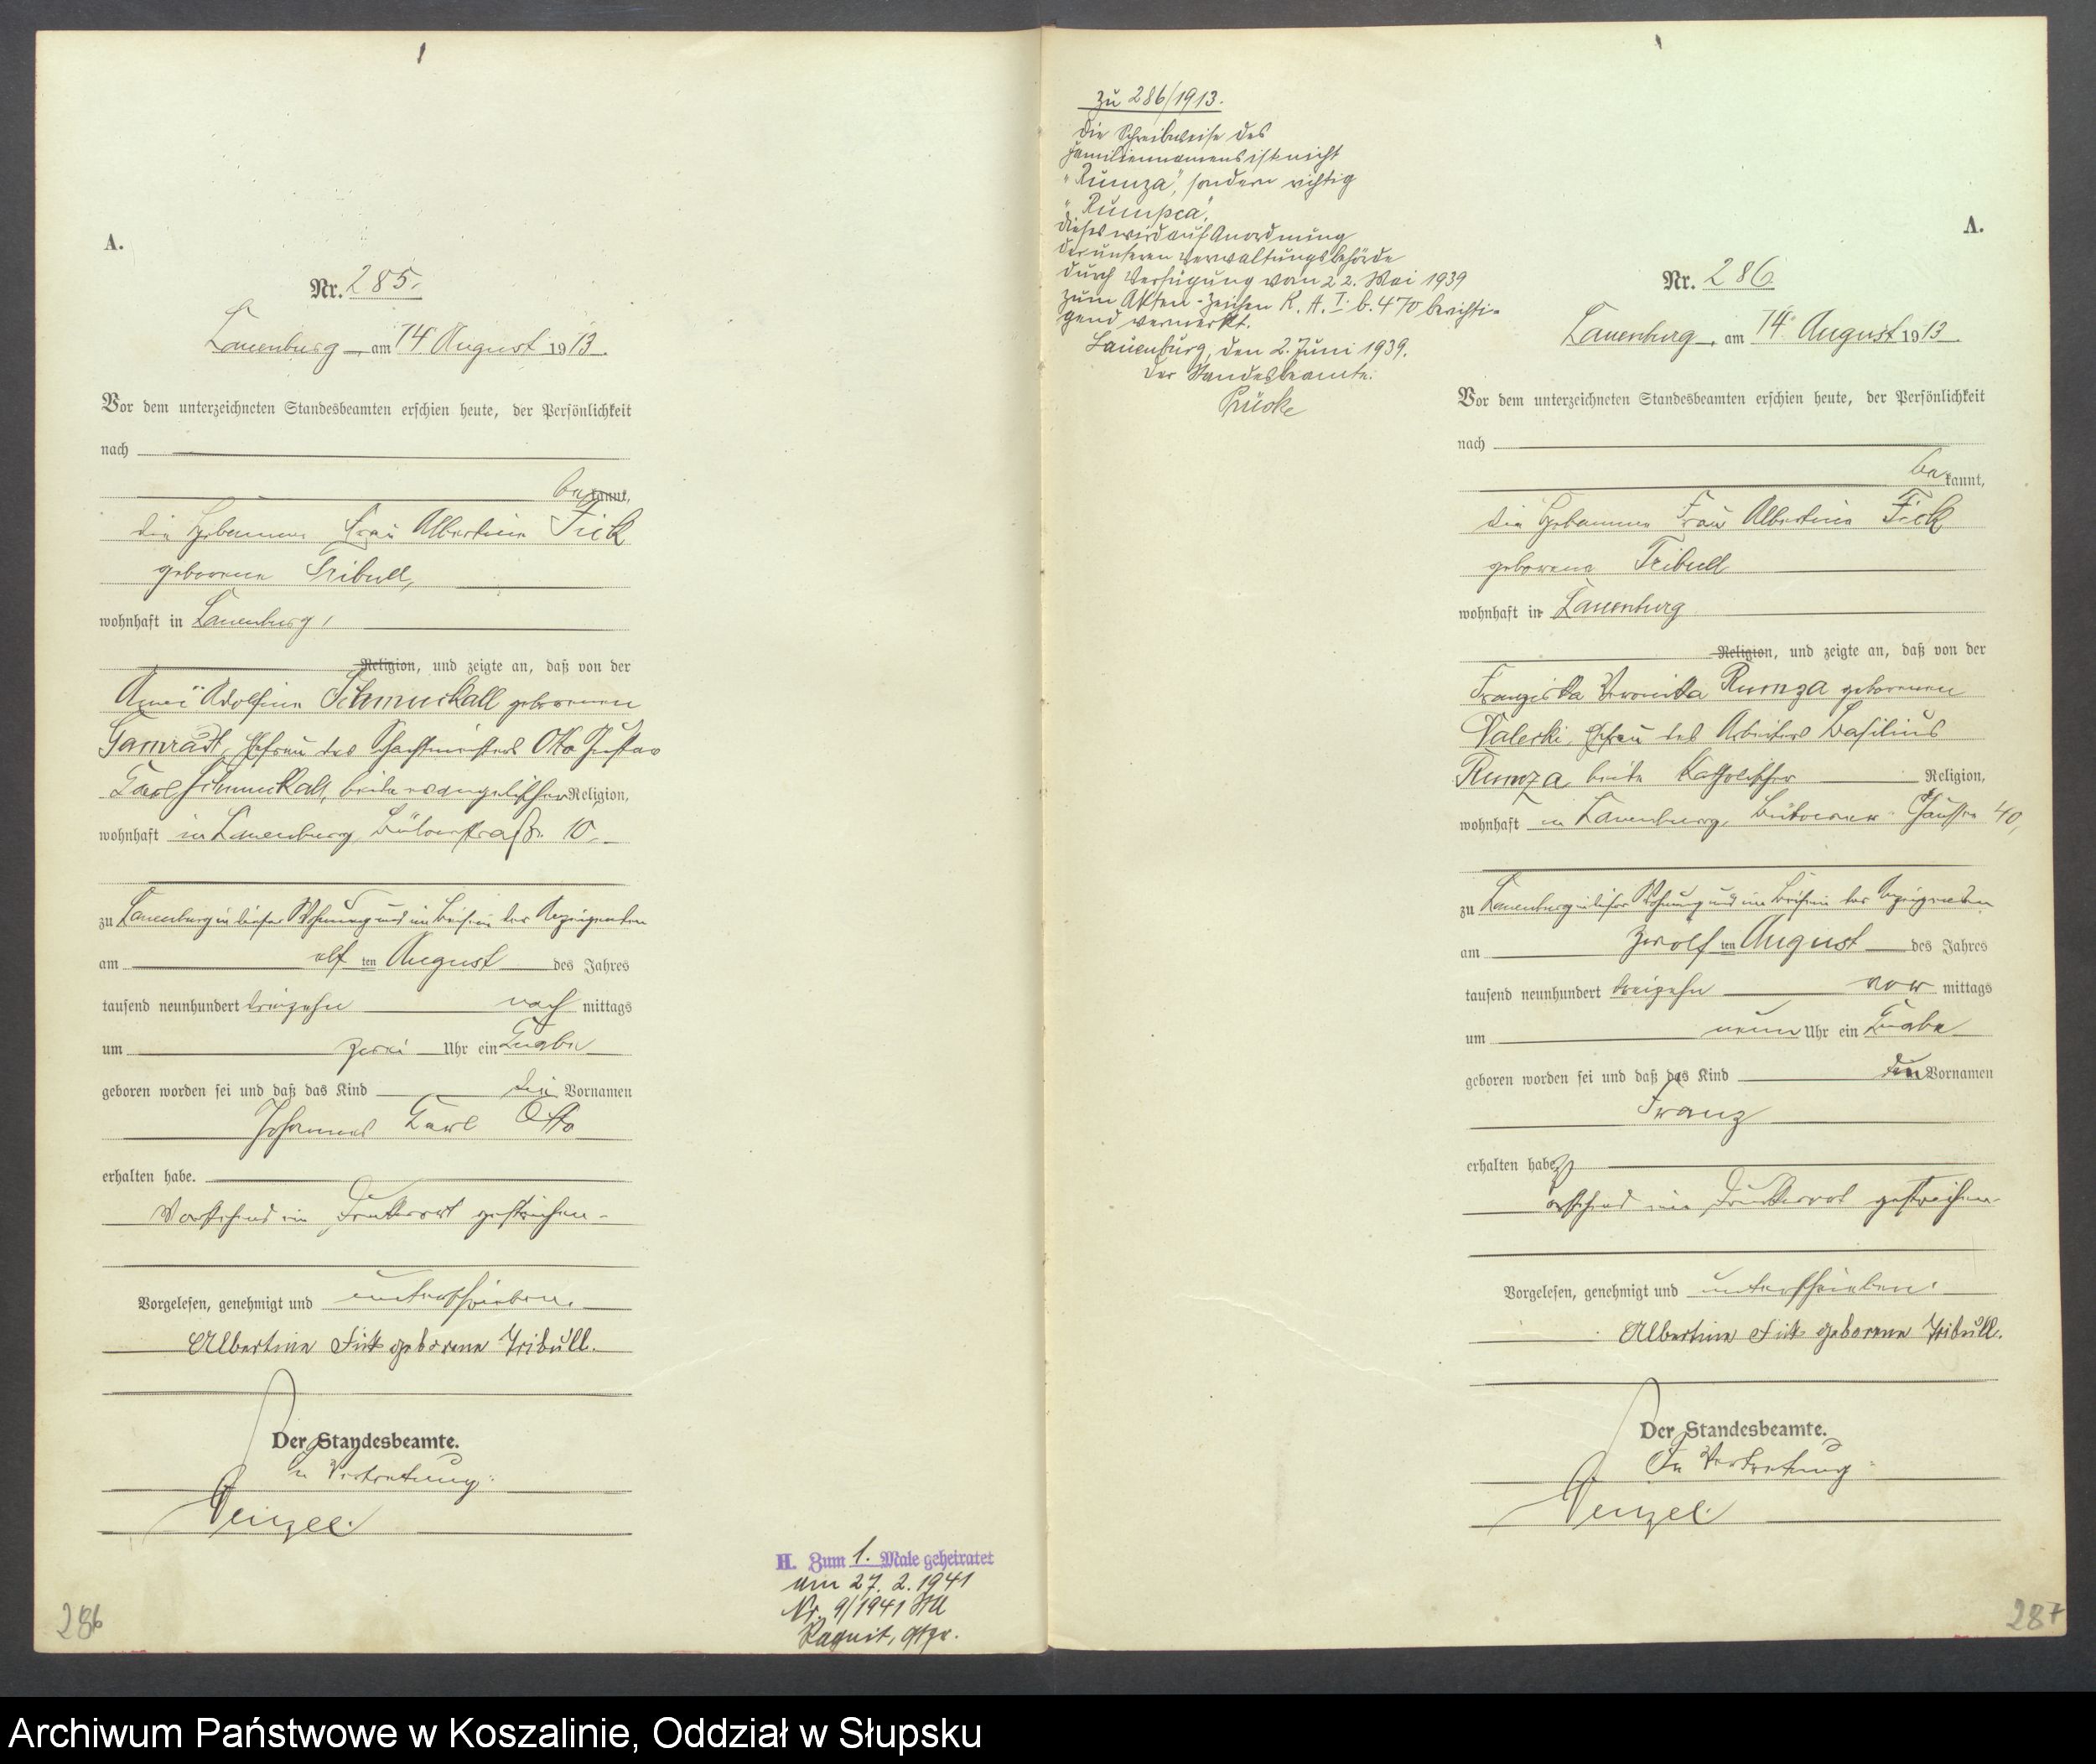 A.
Nr. 285.
Lauenburg, am 14. August 1913.
Vor dem unterzeichneten Standesbeamten erschien heute, der Persönlichkeit
nach
be kannt,
die Hebamme Frau Albertine Fick
geborene Tribull,
wohnhaft in Lauenburg,
Religion, und zeigte an, daß von der
Adolfine Schmuckall geborenen
Gamradt, Ehefrau des Schachtmeisters Otto Gustav
Carl Schmuckall, beide evangelischer Religion,
wohnhaft in Lauenburg, 10.
zu Lauenburg in dieser Wohnung und im Beisein der Anzeigenden
am elf ten August des Jahres
tausend neunhundert dreizehn nach mittags
um zwei Uhr ein Knabe
geboren worden sei und daß das Kind die Vornamen
Johannes Carl Otto
erhalten habe.
Vorstehend ein Druckwort gestrichen.
Vorgelesen, genehmigt und unterschrieben.
Albertine Fick geborene Tribull.
Der Standesbeamte.
In Vertretung:
Wenzel.
286
H. Zum 1. Male geheiratet
am 27. 2. 1941
Nr. 9/1941 StA
Ragnit, Ostpr.
zu 286/1913.
Die Schreibweise des
Familiennamens ist nicht
"Rumza", sondern richtig
"Rumpca".
Dieses wird auf Anordnung
der unteren Verwaltungsbehörde
durch Verfügung vom 22. Mai 1939
zum Akten-Zeichen K. A. I. b. 470 berichti-
gend vermerkt.
Lauenburg, den 2. Juni 1939.
Der Standesbeamte:
A.
Nr. 286
Lauenburg, am 14. August 1913.
Vor dem unterzeichneten Standesbeamten erschien heute, der Persönlichkeit
nach
be kannt,
die Hebamme Frau Albertine Fick
geborene Tribull
wohnhaft in Lauenburg
Religion, und zeigte an, daß von der
Franziska Veronika Rumza geborenen
Valeski, Ehefrau des Arbeiters Basilius
Rumza, beide katholischer Religion,
wohnhaft in Lauenburg, Bütower Chaussee 40,
zu Lauenburg in dieser Wohnung und im Beisein der Anzeigenden
am zwölf ten August des Jahres
tausend neunhundert dreizehn vor mittags
um neun Uhr ein Knabe
geboren worden sei und daß das Kind den Vornamen
Franz
erhalten habe.
Vorstehend ein Druckwort gestrichen.
Vorgelesen, genehmigt und unterschrieben.
Albertine Fick geborene Tribull.
Der Standesbeamte.
In Vertretung:
Wenzel.
287
Archiwum Państwowe w Koszalinie, Oddział w Słupsku